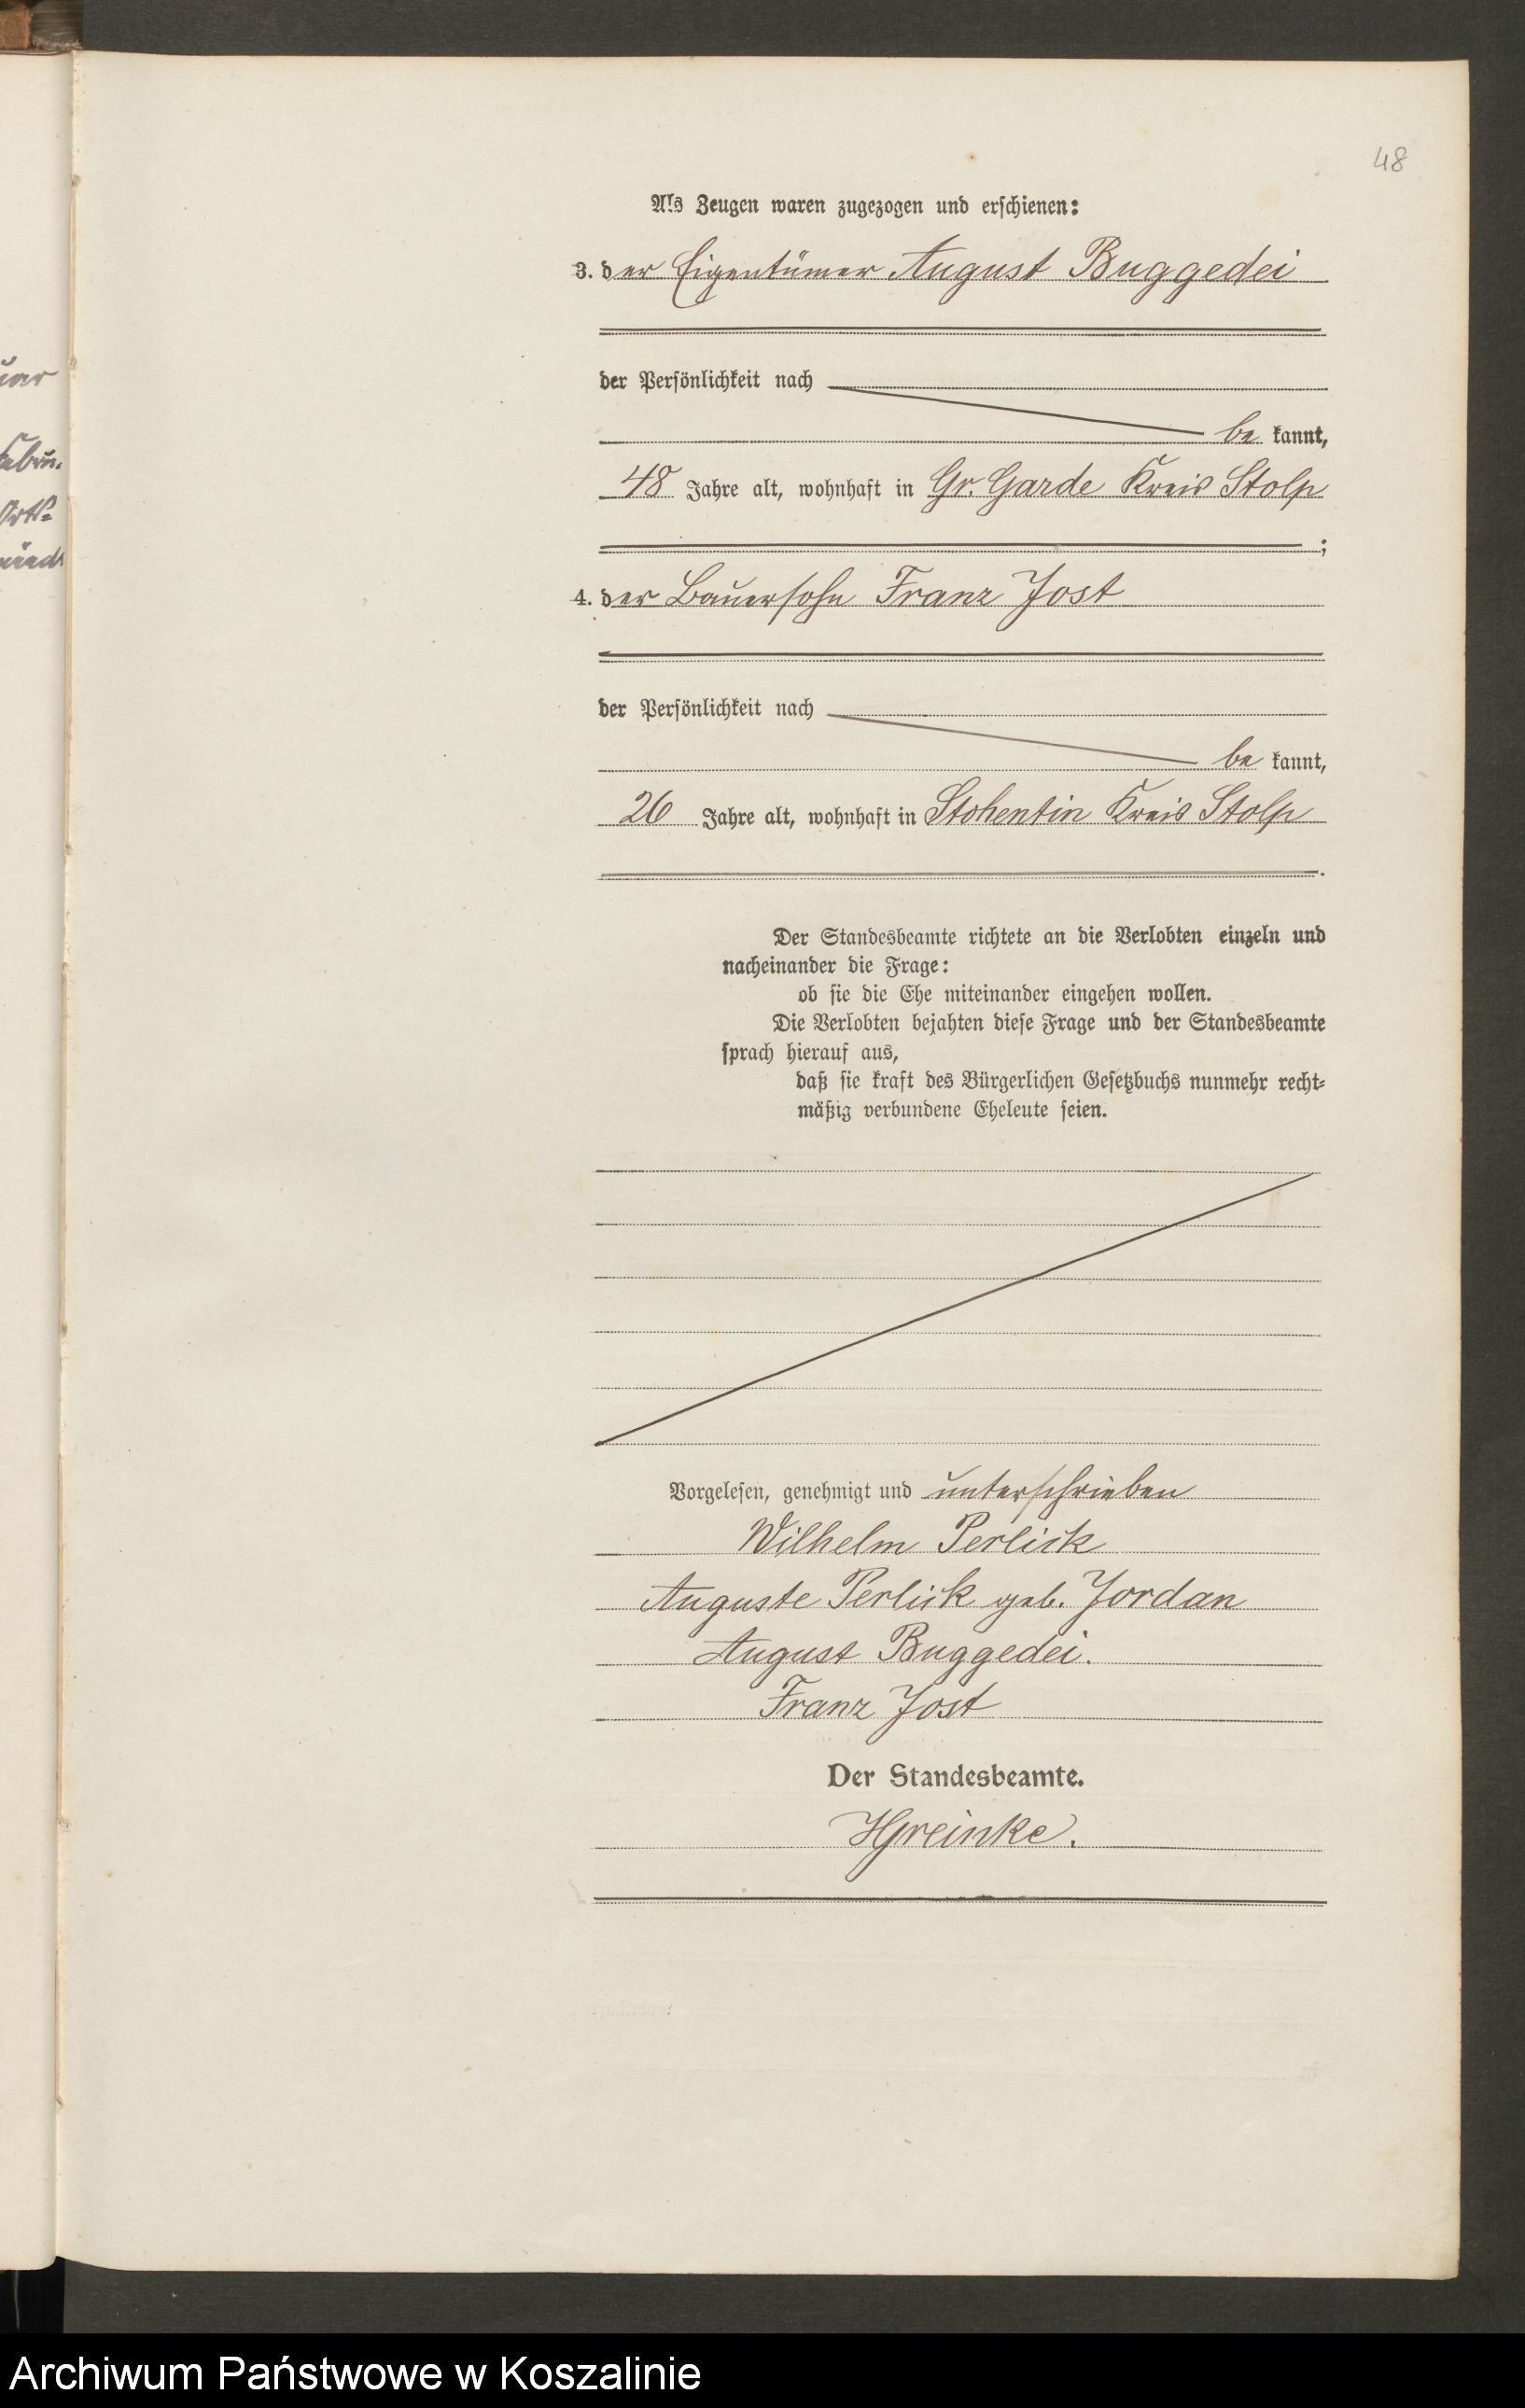 48
Als Zeugen waren zugezogen und erschienen:
3. der Eigentümer August Buggedei
der Persönlichkeit nach
be kannt,
48 Jahre alt, wohnhaft in Gr. Garde Kreis Stolp
;
4. der Bauersohn Franz Jost
der Persönlichkeit nach
be kannt,
26 Jahre alt, wohnhaft in Stohentin Kreis Stolp
.
Der Standesbeamte richtete an die Verlobten einzeln und
nacheinander die Frage:
ob sie die Ehe miteinander eingehen wollen.
Die Verlobten bejahten diese Frage und der Standesbeamte
sprach hierauf aus,
daß sie kraft des Bürgerlichen Gesetzbuchs nunmehr recht-
mäßig verbundene Eheleute seien.
Vorgelesen, genehmigt und unterschrieben
Wilhelm Perlick
Auguste Perlick geb. Jordan
August Buggedei.
Franz Jost
Der Standesbeamte.
HGreinke.
Archiwum Państwowe w Koszalinie